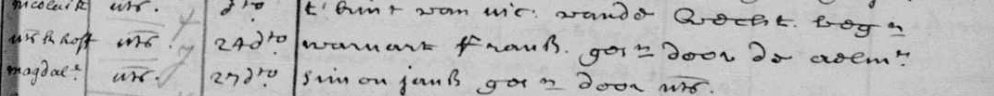 nicolaik uts. dto t' kint van vic: vande Vecht. beg n
uts khoff uts. 24 dto warnart franß. ges n door de aelm r
magdal e uts. 27 dto simon janß ges n door uts.